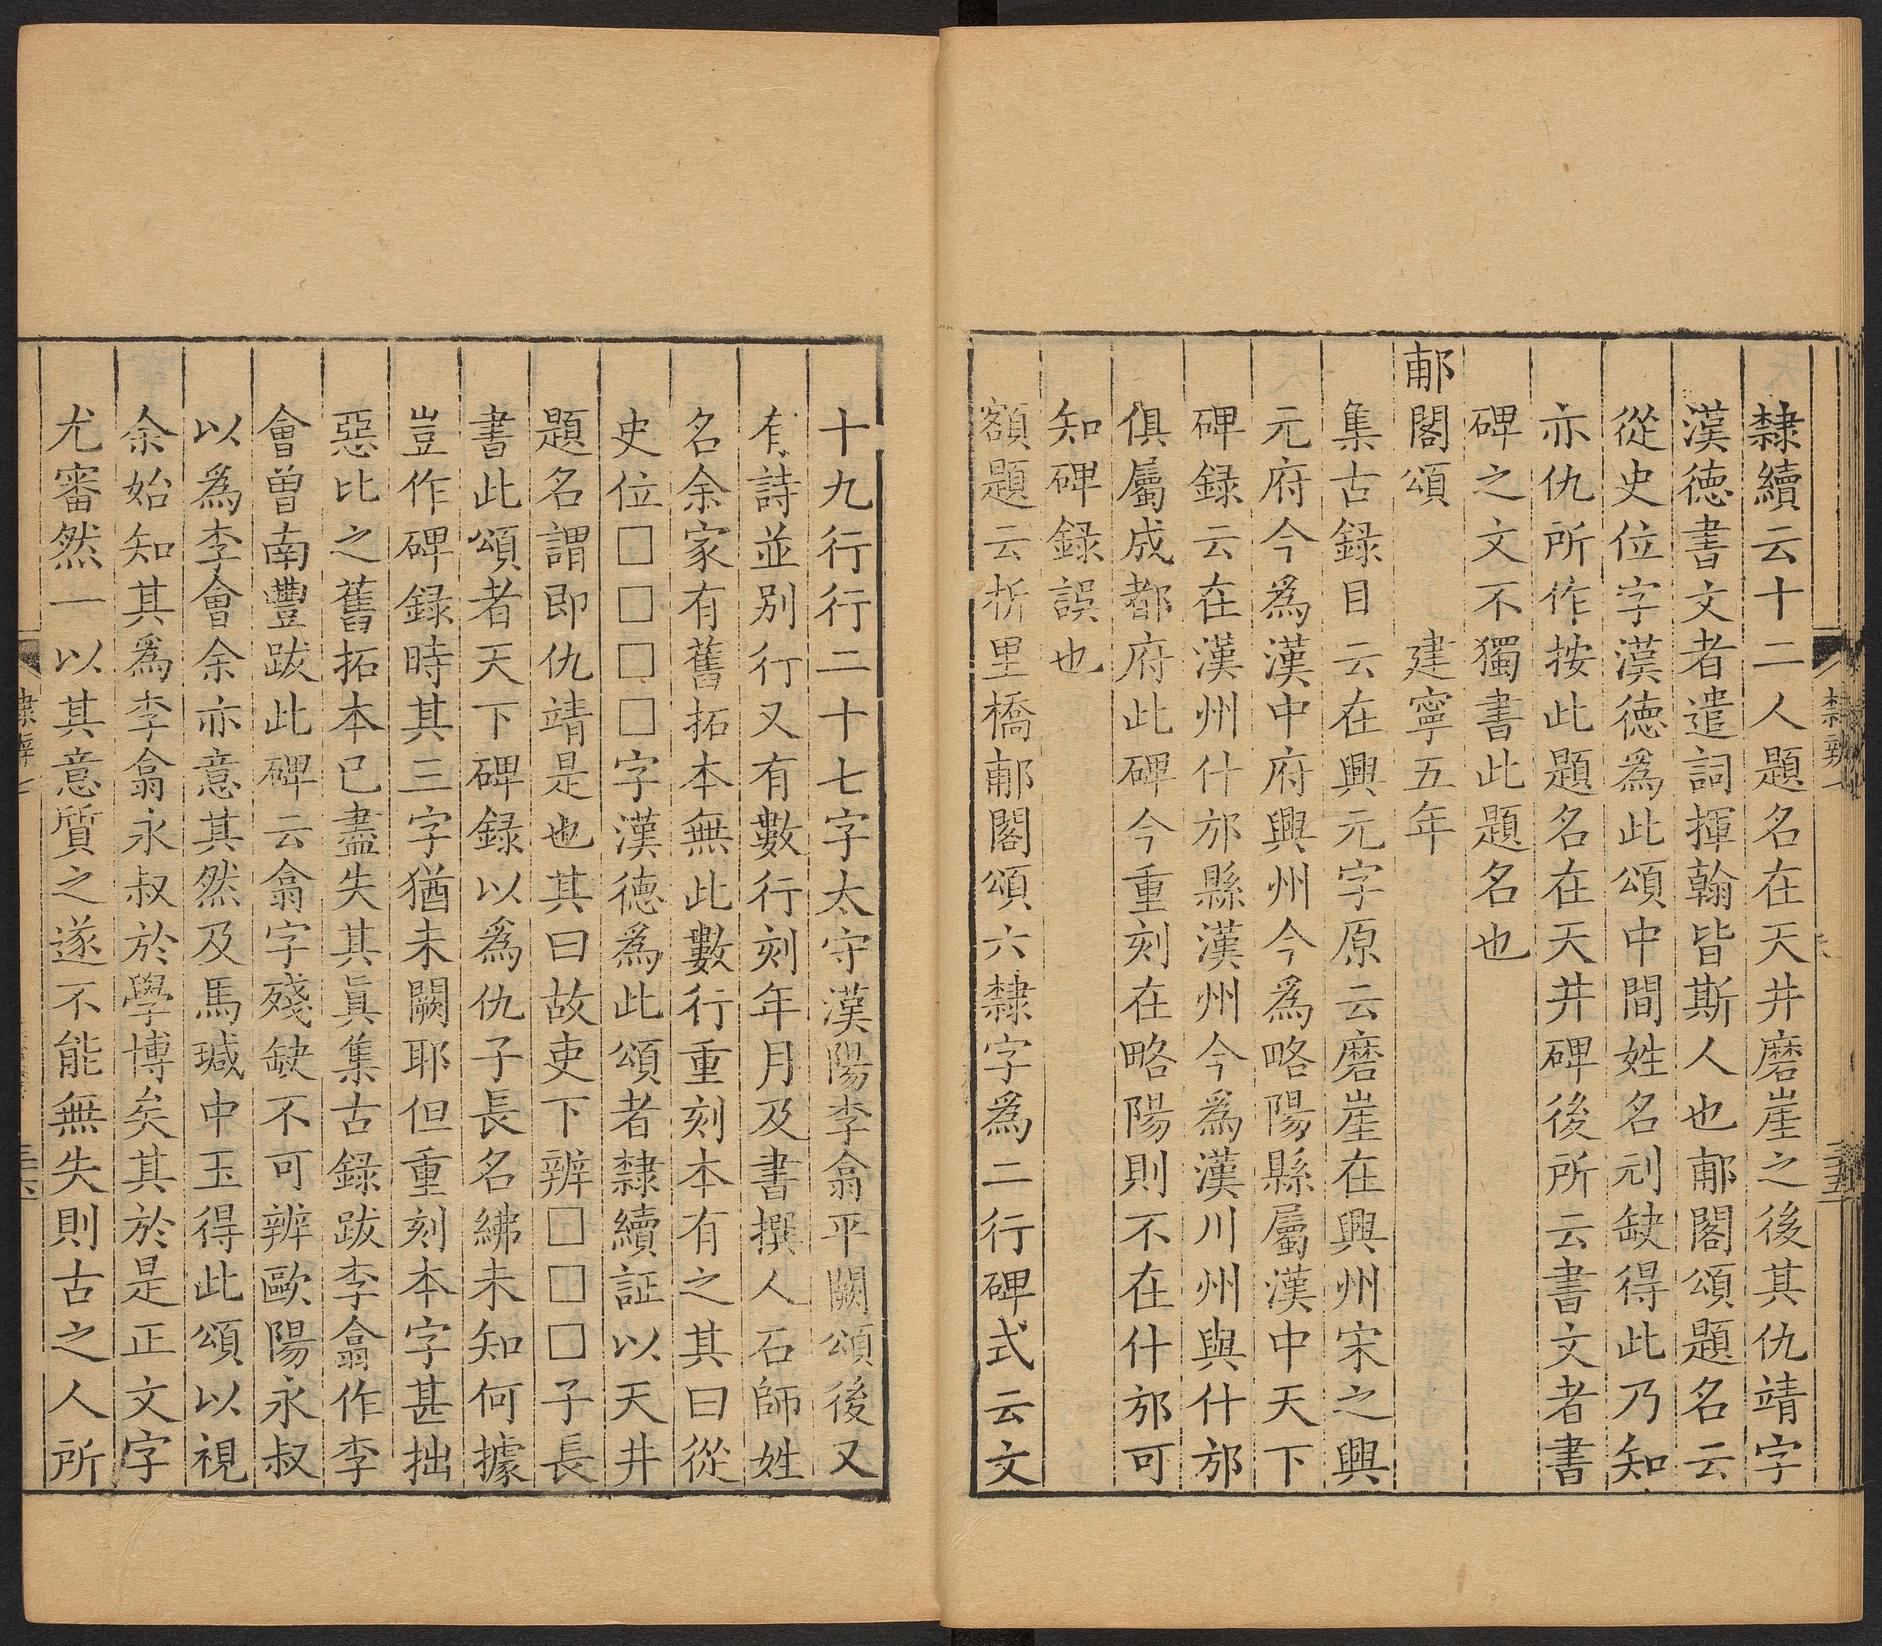 隸續云十二人題名在天井磨崖之後其仇靖字
漢德書文者遣詞揮翰皆斯人也郙閣頌題名云
從史位字漢德爲此頌中間姓名刓缺得此乃知
亦仇所作按此題名在天井碑後所云書文者書
碑之文不獨書此題名也
郙閣頌 建寧五年
集古録目云在興元字原云磨崖在興州宋之興
元府今爲漢中府興州今爲略陽縣屬漢中天下
碑録云在漢州什邡縣漢州今爲漢川州與什邡
俱屬成都府此碑今重刻在略陽則不在什邡可
知碑録誤也
額題云析里橋郙閣頌六隸字爲二行碑式云文
十九行行二十七字太守漢陽李翕平闕頌後又
有詩並別行又有數行刻年月及書撰人石師姓
名余家有舊拓本無此數行重刻本有之其曰從
史位□□□□字漢德爲此頌者隸續証以天井
題名謂即仇靖是也其曰故吏下辨□□□子長
書此頌者天下碑録以爲仇子長名紼未知何據
豈作碑録時其三字猶未闕耶但重刻本字甚拙
惡比之舊拓本已盡失其眞集古録跋李翕作李
會曾南豐跋此碑云翕字殘缺不可辨歐陽永叔
以爲李會余亦意其然及馬瑊中玉得此頌以視
余始知其爲李翕永叔於學博矣其於是正文字
尤審然一以其意質之遂不能無失則古之人所